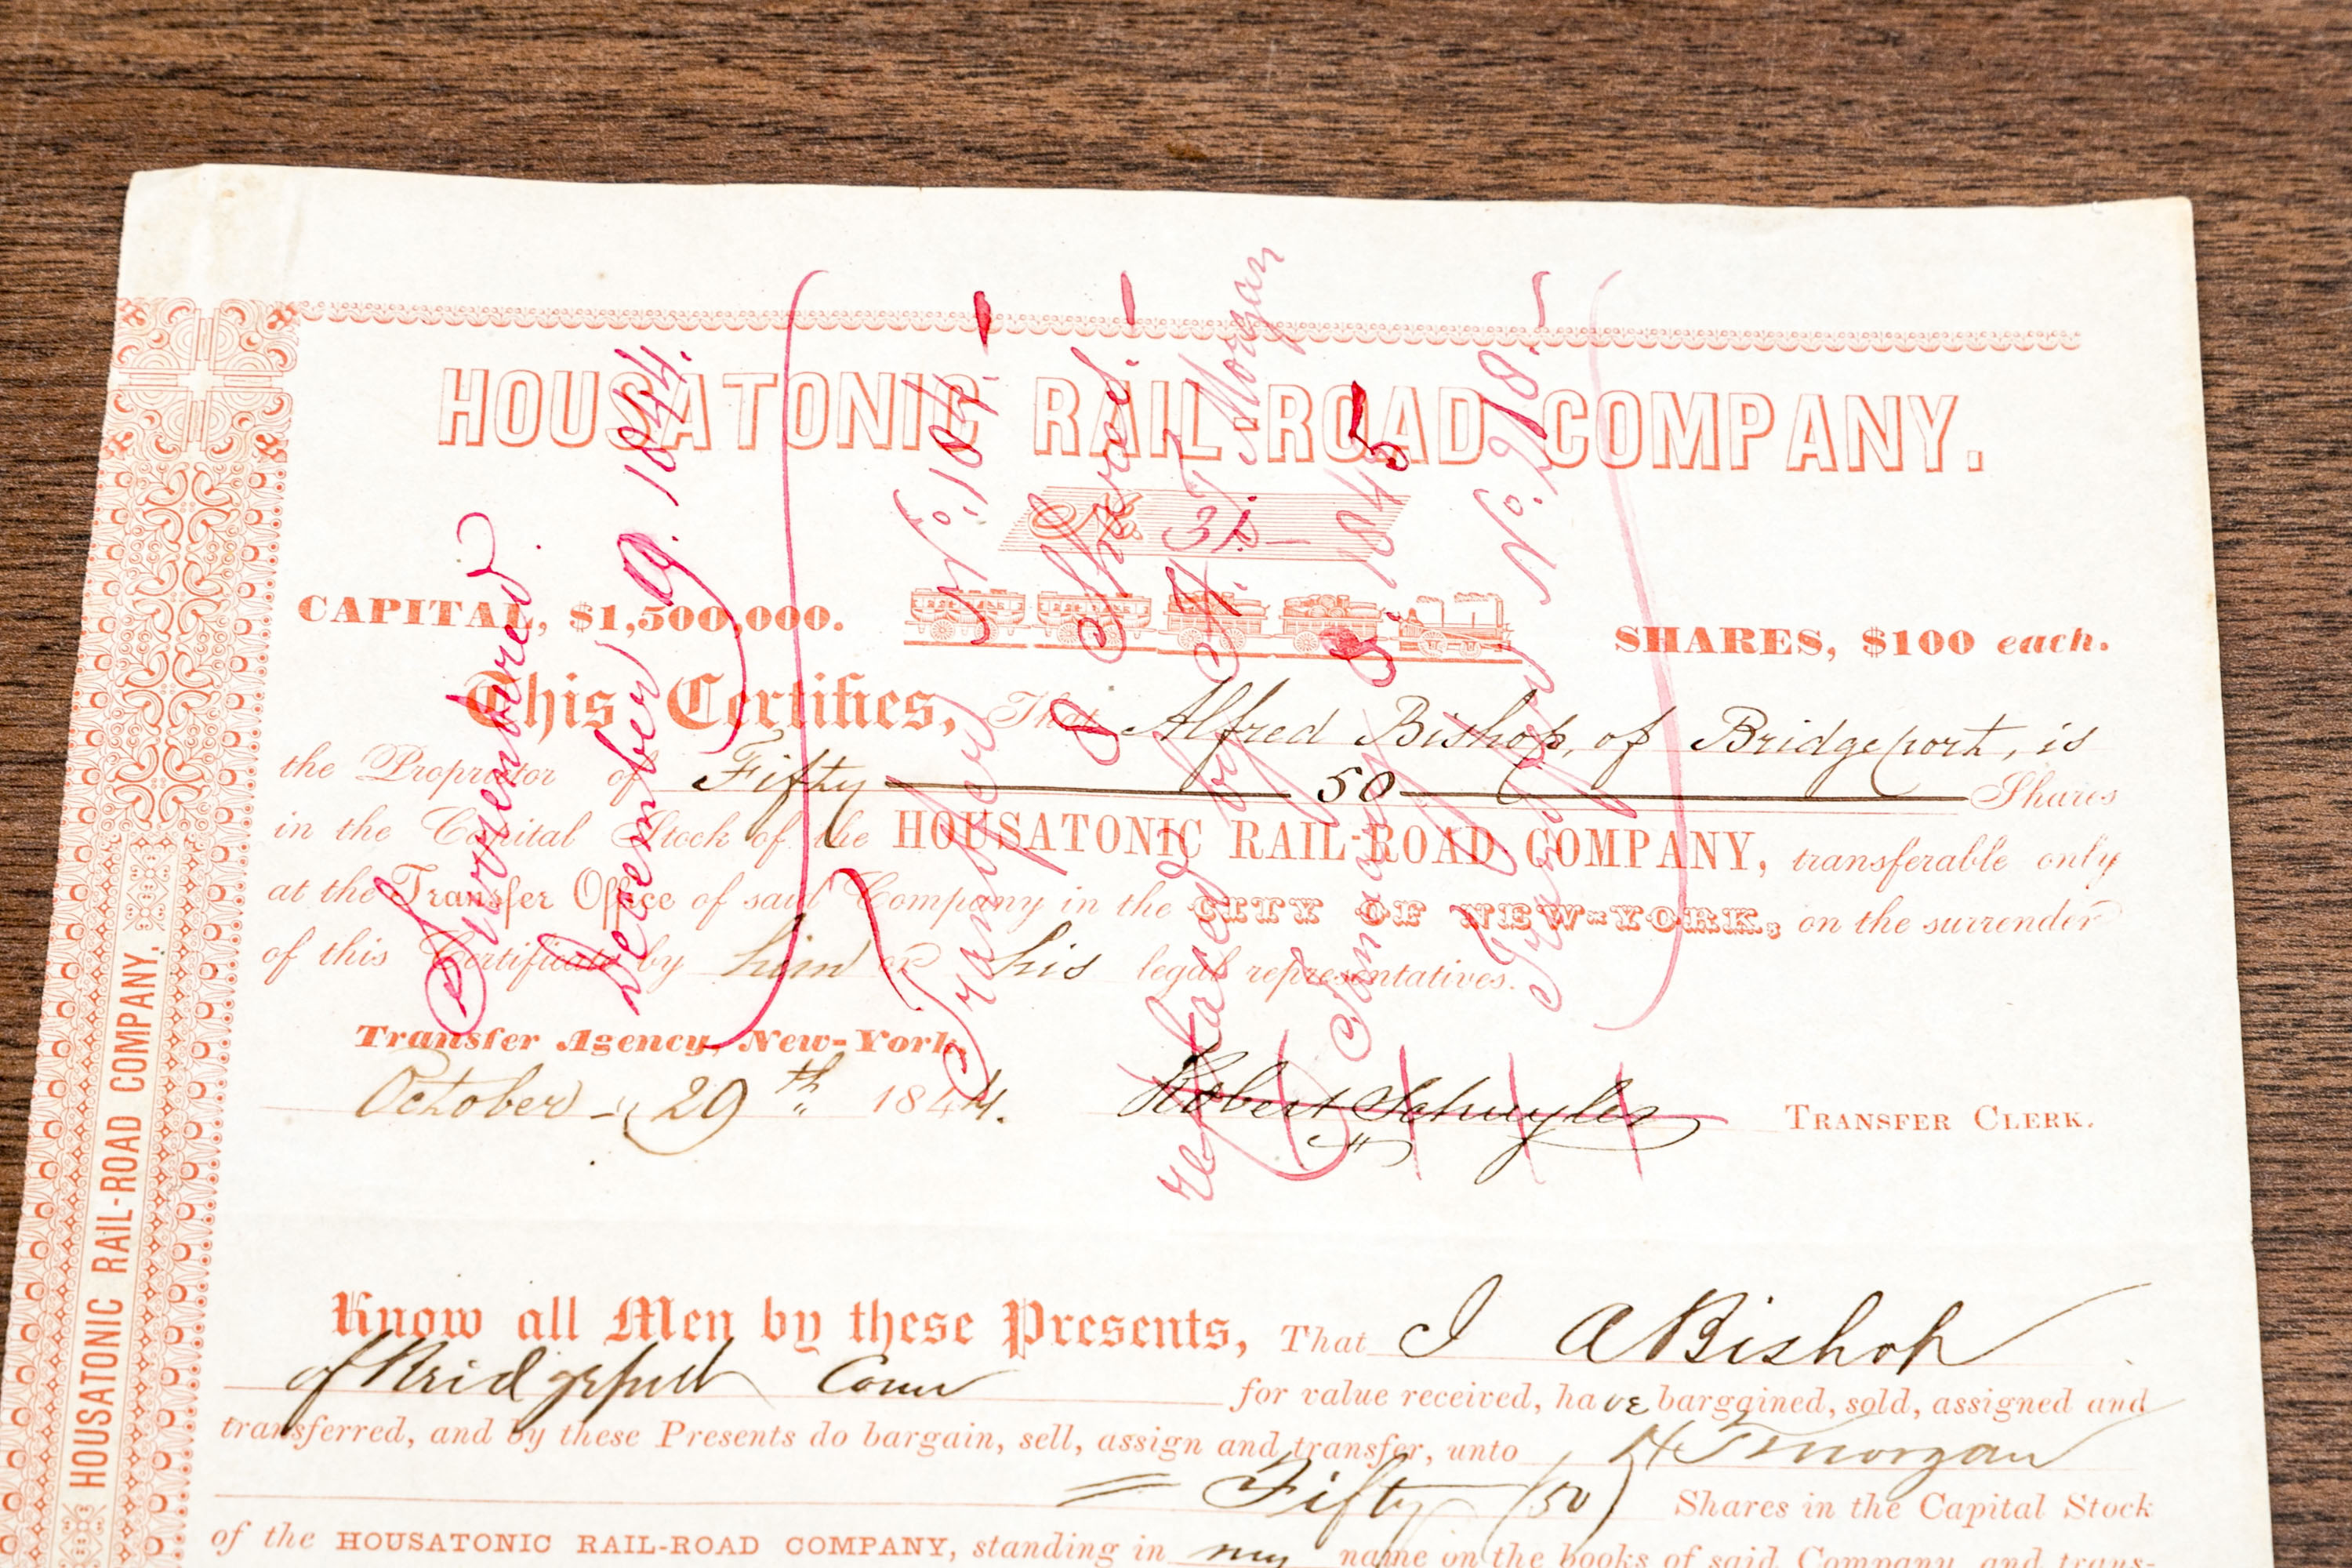 HOUSATONIC RAIL-ROAD COMPANY.
HOUSATONIC RAIL ROAD COMPANY.
CAPITAL, $1,500,000.
SHARES, $100 each.
This Certifies, That Alfred Bishop, of Bridgeport, is
the Proprietor of Fifty 50 Shares
in the Capital Stock of the HOUSATONIC RAIL-ROAD COMPANY, transferable only
at the Transfer Office of said Company in the CITY OF NEW-YORK, on the surrender
of this Certificate by him or his legal representatives.
Transfer Agency, New-York,
October 29th 1844.
Robert Schuyler TRANSFER CLERK.
Surrendered
December 19. 1844.
Transferd No. 184.
8 Shares
replaced by H. T. Morgan
January 8. 1845
Transferd No. 218.
Know all Men by these Presents, That I ABishop
of Bridgeport Conn for value received, have bargained, sold, assigned and
transferred, and by these Presents do bargain, sell, assign and transfer, unto H T Morgan
Fifty (50) Shares in the Capital Stock
of the HOUSATONIC RAIL-ROAD COMPANY, standing in my name on the books of said Company, and trans-